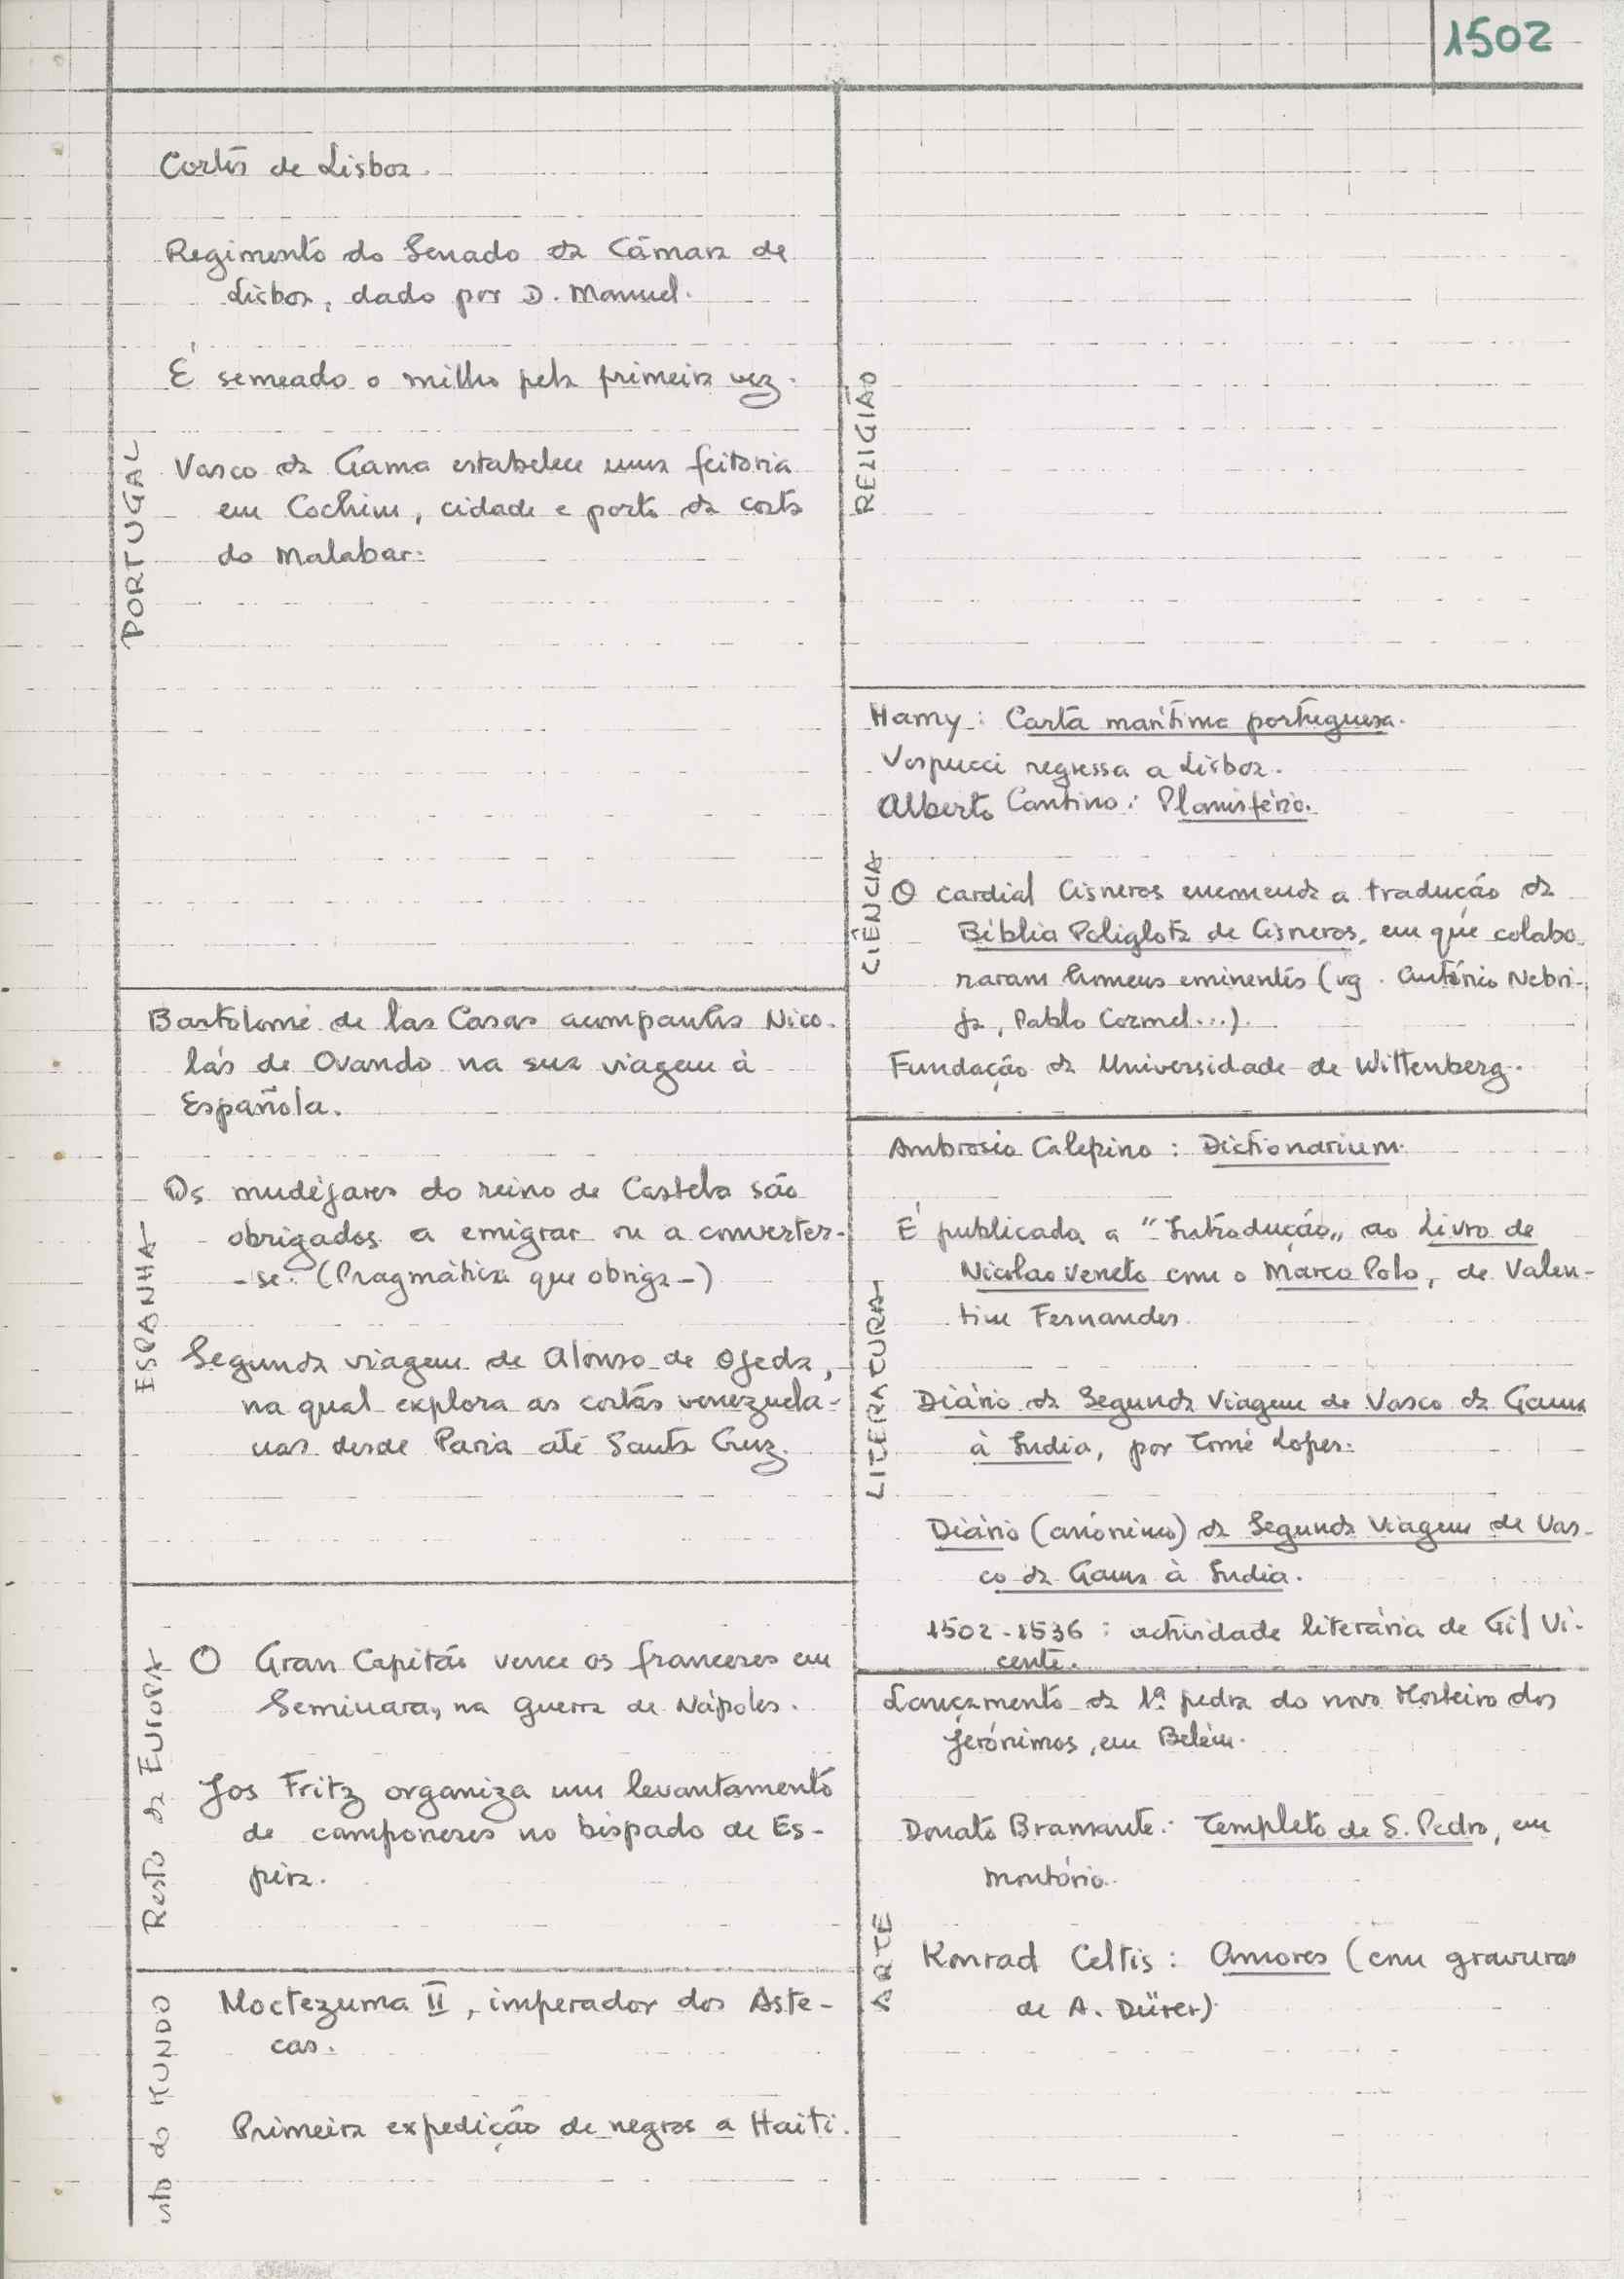 1502
PORTUGAL
Cortes de Lisboa.
Regimento do Senado da Câmara de
Lisboa, dado por D. Manuel.
É semeado o milho pela primeira vez.
Vasco da Gama estabelece uma feitoria
em Cochim, cidade e porto da costa
do Malabar.
ESPANHA
Bartolomé de las Casas acompanha Nico-
lás de Ovando na sua viagem à
Española.
Os mudéjares do reino de Castela são
obrigados a emigrar ou a converter-
-se. (Pragmática que obriga-)
Segunda viagem de Alonso de Ojeda,
na qual explora as costas venezuela-
nas desde Paria até Santa Cruz.
Resto da EUROPA
O Gran Capitão vence os franceses em
Seminara, na guerra de Nápoles.
Jos Fritz organiza um levantamento
de camponeses no bispado de Es-
pira.
esto do MUNDO
Moctezuma II, imperador dos Aste-
cas.
Primeira expedição de negros a Haiti.
RELIGIÃO
CIÊNCIA
Hamy: Carta marítima portuguesa.
Vespucci regressa a Lisboa.
Alberto Cantino: Planisfério.
O cardial Cisneros enumenda a tradução da
Bíblia Poliglota de Cisneros, em que colabo-
raram homens eminentes (vg. António Nebri-
ja, Pablo Cormel...).
Fundação da Universidade de Wittenberg.
LITERATURA
Ambrosio Calepino: Dictionarium.
É publicada a "Introdução" ao Livro de
Nicolao Veneto com o Marco Polo, de Valen-
tim Fernandes.
Diário da Segunda Viagem de Vasco da Gama
à India, por Tomé Lopes.
Diário (anónimo) da Segunda Viagem de Vas-
co da Gama à India.
1502-1536: actividade literária de Gil Vi-
cente.
ARTE
Lançamento da 1ª pedra do novo Mosteiro dos
Jerónimos, em Belém.
Donato Bramante: Templeto de S. Pedro, em
Montório.
Konrad Celtis: Amores (com gravuras
de A. Dürer).